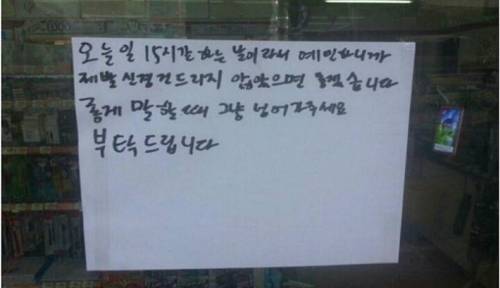 오늘 일 15시간 하는 날이라서 예민하니까
제발 신경 건드리지 않았으면 좋겠습니다
좋게 말할때 그냥 넘어가주세요
부탁드립니다